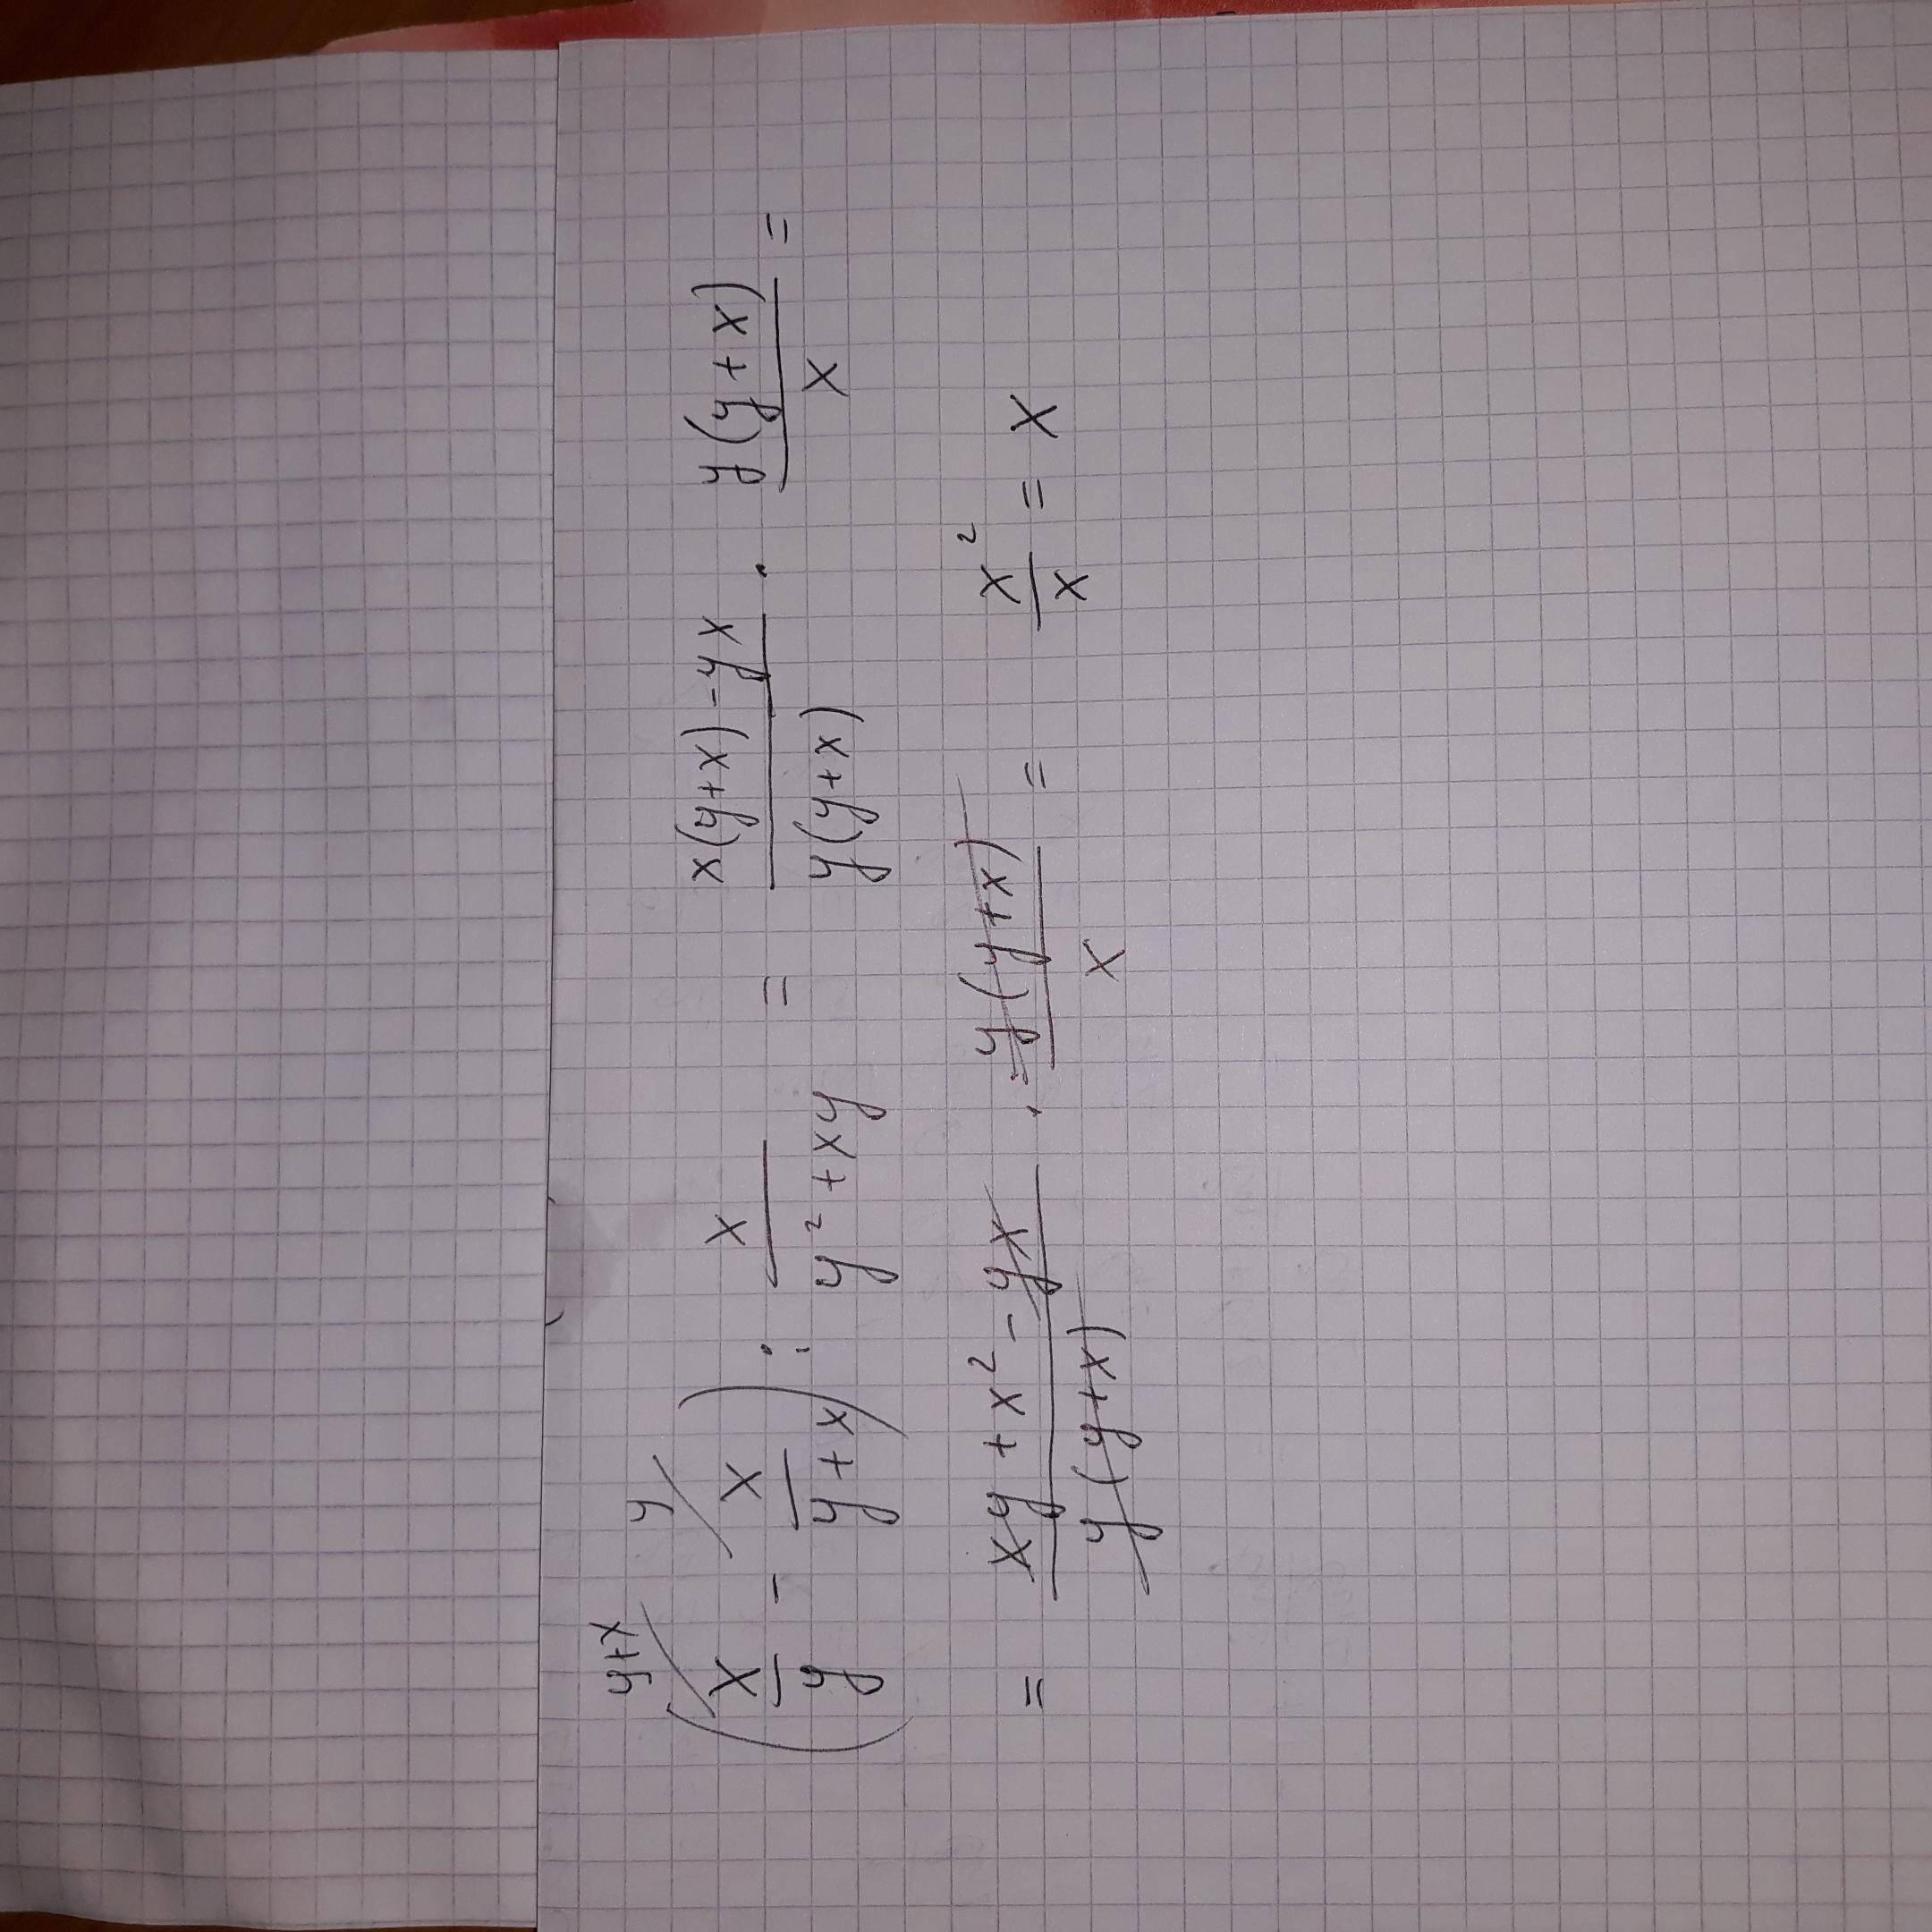 (x/y - x/(y+x)) : x/(y²+xy) = (x(y+x)-yx)/(y(y+x)) · y(y+x)/x =
= (xy+x²-yx)/(y(y+x)) · y(y+x)/x = x²/x = x
y+x y